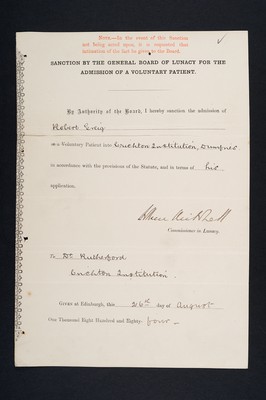 NOTE.—In the event of this Sanction
not being acted upon, it is requested that
intimation of the fact be given to the Board.
SANCTION BY THE GENERAL BOARD OF LUNACY FOR THE
ADMISSION OF A VOLUNTARY PATIENT.
By Authority of the Board, I hereby sanction the admission of
Robert Greig
as a Voluntary Patient into Crichton Institution, Dumfries
in accordance with the provisions of the Statute, and in terms of his
application.
Commissioner in Lunacy.
To Dr Rutherford
Crichton Institution.
GIVEN at Edinburgh, this 26th day of August
One Thousand Eight Hundred and Eighty-four